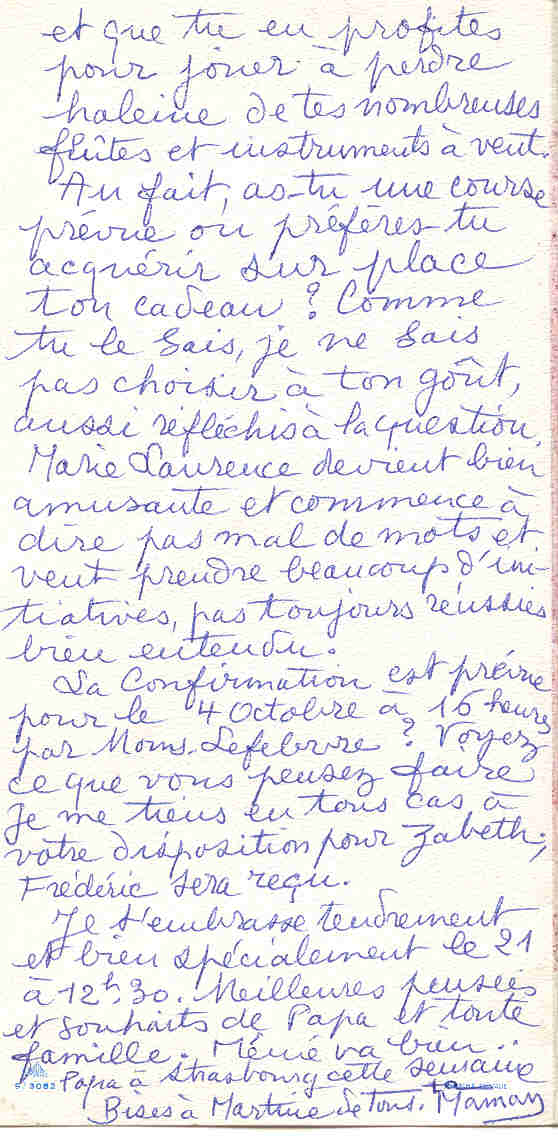 et que tu en profites
pour jouer à perdre
haleine de tes nombreuses
flûtes et instruments à vent.
Au fait, as-tu une course
prévue ou préfères-tu
acquérir sur place
ton cadeau ? Comme
tu le sais, je ne sais
pas choisir à ton goût,
aussi réfléchis à la question.
Marie Laurence devient bien
amusante et commence à
dire pas mal de mots et
veut prendre beaucoup d'ini-
tiatives, pas toujours réussies
bien entendu.
La Confirmation est prévue
pour le 4 Octobre à 16 heures
par Mons. Lefebvre ? Voyez
ce que vous pensez faire
Je me tiens en tous cas à
votre disposition pour Zabeth ;
Frédéric sera reçu.
Je t'embrasse tendrement
et bien spécialement le 21
à 12h,30. Meilleures pensées
et souhaits de Papa et toute
famille. Mémé va bien.
Papa à Strasbourg cette semaine
Bises à Martine de Tous. Maman